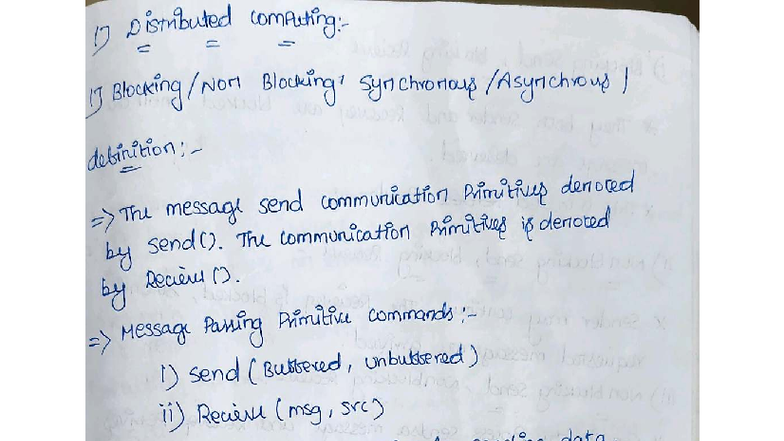 1) Distributed computing:-
1) Blocking/Non Blocking, Synchronous/Asynchrous |
definition:-
=> The message send communication Primitives denoted
by send(). The communication Primitives is denoted
by Recieve().
=> Message Passing Primitive commands:-
i) send (Buffered, unbuffered)
ii) Recieve (msg, src)
data